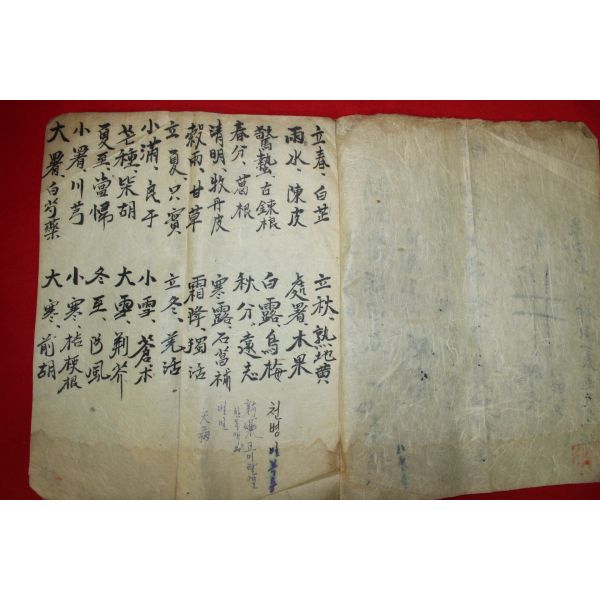 立春、白芷
雨水、陳皮
驚蟄、古鍊根
春分、葛根
清明、牧丹皮
穀雨、甘草
立夏、只實
小滿、良干
芒種、柴胡
夏至、當悌
小暑、川芎
大暑、白芍藥
立秋、熟地黃
處暑、木果
白露、烏梅
秋分、遠志
寒露、石菖補
霜降、獨活
立冬、羌活
小雪、蒼朮
大雪、荊芥
冬至、防風
小寒、桔梗根
大寒、前胡
천병